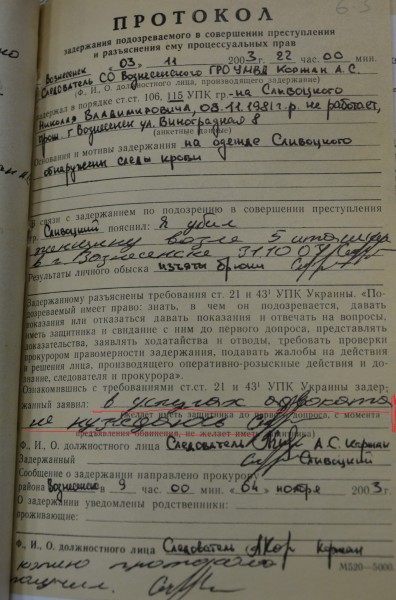 63
ПРОТОКОЛ
задержания подозреваемого в совершении преступления
и разъяснения ему процессуальных прав
Вознесенск « 03 » 11 2003 г. 22 час. 00 мин.
Следователь СО Вознесенского ГРО УМВД Коржан А.С.
(Ф, И, О. должностного лица, производящего задержание)
задержал в порядке ст.ст. 106, 115 УПК гр-на Сливоцкого
Николая Владимировича, 03.11.1981 г.р. не работает,
прож. г Вознесенск ул. Виноградная 8
(анкетные данные)
Основания и мотивы задержания на одежде Сливоцкого
обнаружены следы крови
В связи с задержанием по подозрению в совершении преступления
гр. Сливоцкий пояснил: Я убил
женщину возле 5 
в г. Вознесенске 31.10.03
Результаты личного обыска изъяты брюки
Задержанному разъяснены требования ст. 21 и 43¹ УПК Украины. «По-
дозреваемый имеет право: знать, в чем он подозревается, давать
показания или отказаться давать показания и отвечать на вопросы,
иметь защитника и свидание с ним до первого допроса, представлять
доказательства, заявлять ходатайства и отводы, требовать проверки
прокурором правомерности задержания, подавать жалобы на действия
и решения лица, производящего оперативно-розыскные действия и до-
знание, следователя и прокурора».
Ознакомившись с требованиями ст.ст. 21 и 43¹ УПК Украины задер-
жанный заявил: в услугах адвоката
(желает иметь защитника до первого допроса, с момента
не нуждаюсь
предъявления обвинения, не желает иметь защитника)
Ф., И., О. должностного лица Следователь А.С. Коржан
Задержанный Сливоцкий
Сообщение о задержании направлено прокурору
района Вознесенск в 9 час. 00 мин « 04 » ноября 2003 г.
О задержании уведомлены родственники:
проживающие:
Ф., И., О. должностного лица Следователь Коржан
копию протокола
получил.
М520—5000